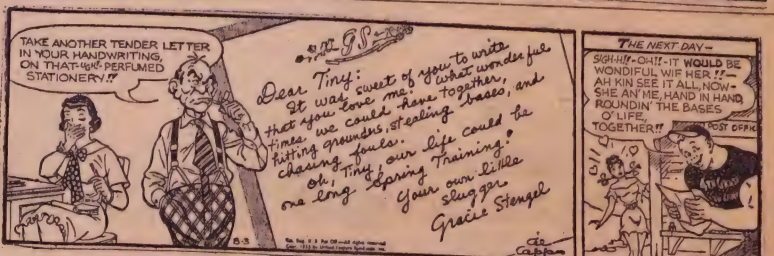 TAKE ANOTHER TENDER LETTER
IN YOUR HANDWRITING,
ON THAT-UGH!-PERFUMED
STATIONERY!!
GS
Dear Tiny:
It was sweet of you to write
that you love me! What wonderful
times we could have together,
hitting grounders, stealing bases, and
chasing fouls.
Oh, Tiny, our life could be
one long Spring Training!
Your own little
slugger
Gracie Stengel
8-3
Capp
THE NEXT DAY-
SIGH-H!!-OH!!-IT WOULD BE
WONDIFUL WIF HER!!-
AH KIN SEE IT ALL, NOW-
SHE AN' ME, HAND IN HAND,
ROUNDIN' THE BASES
O' LIFE,
TOGETHER!!
POST OFFIC